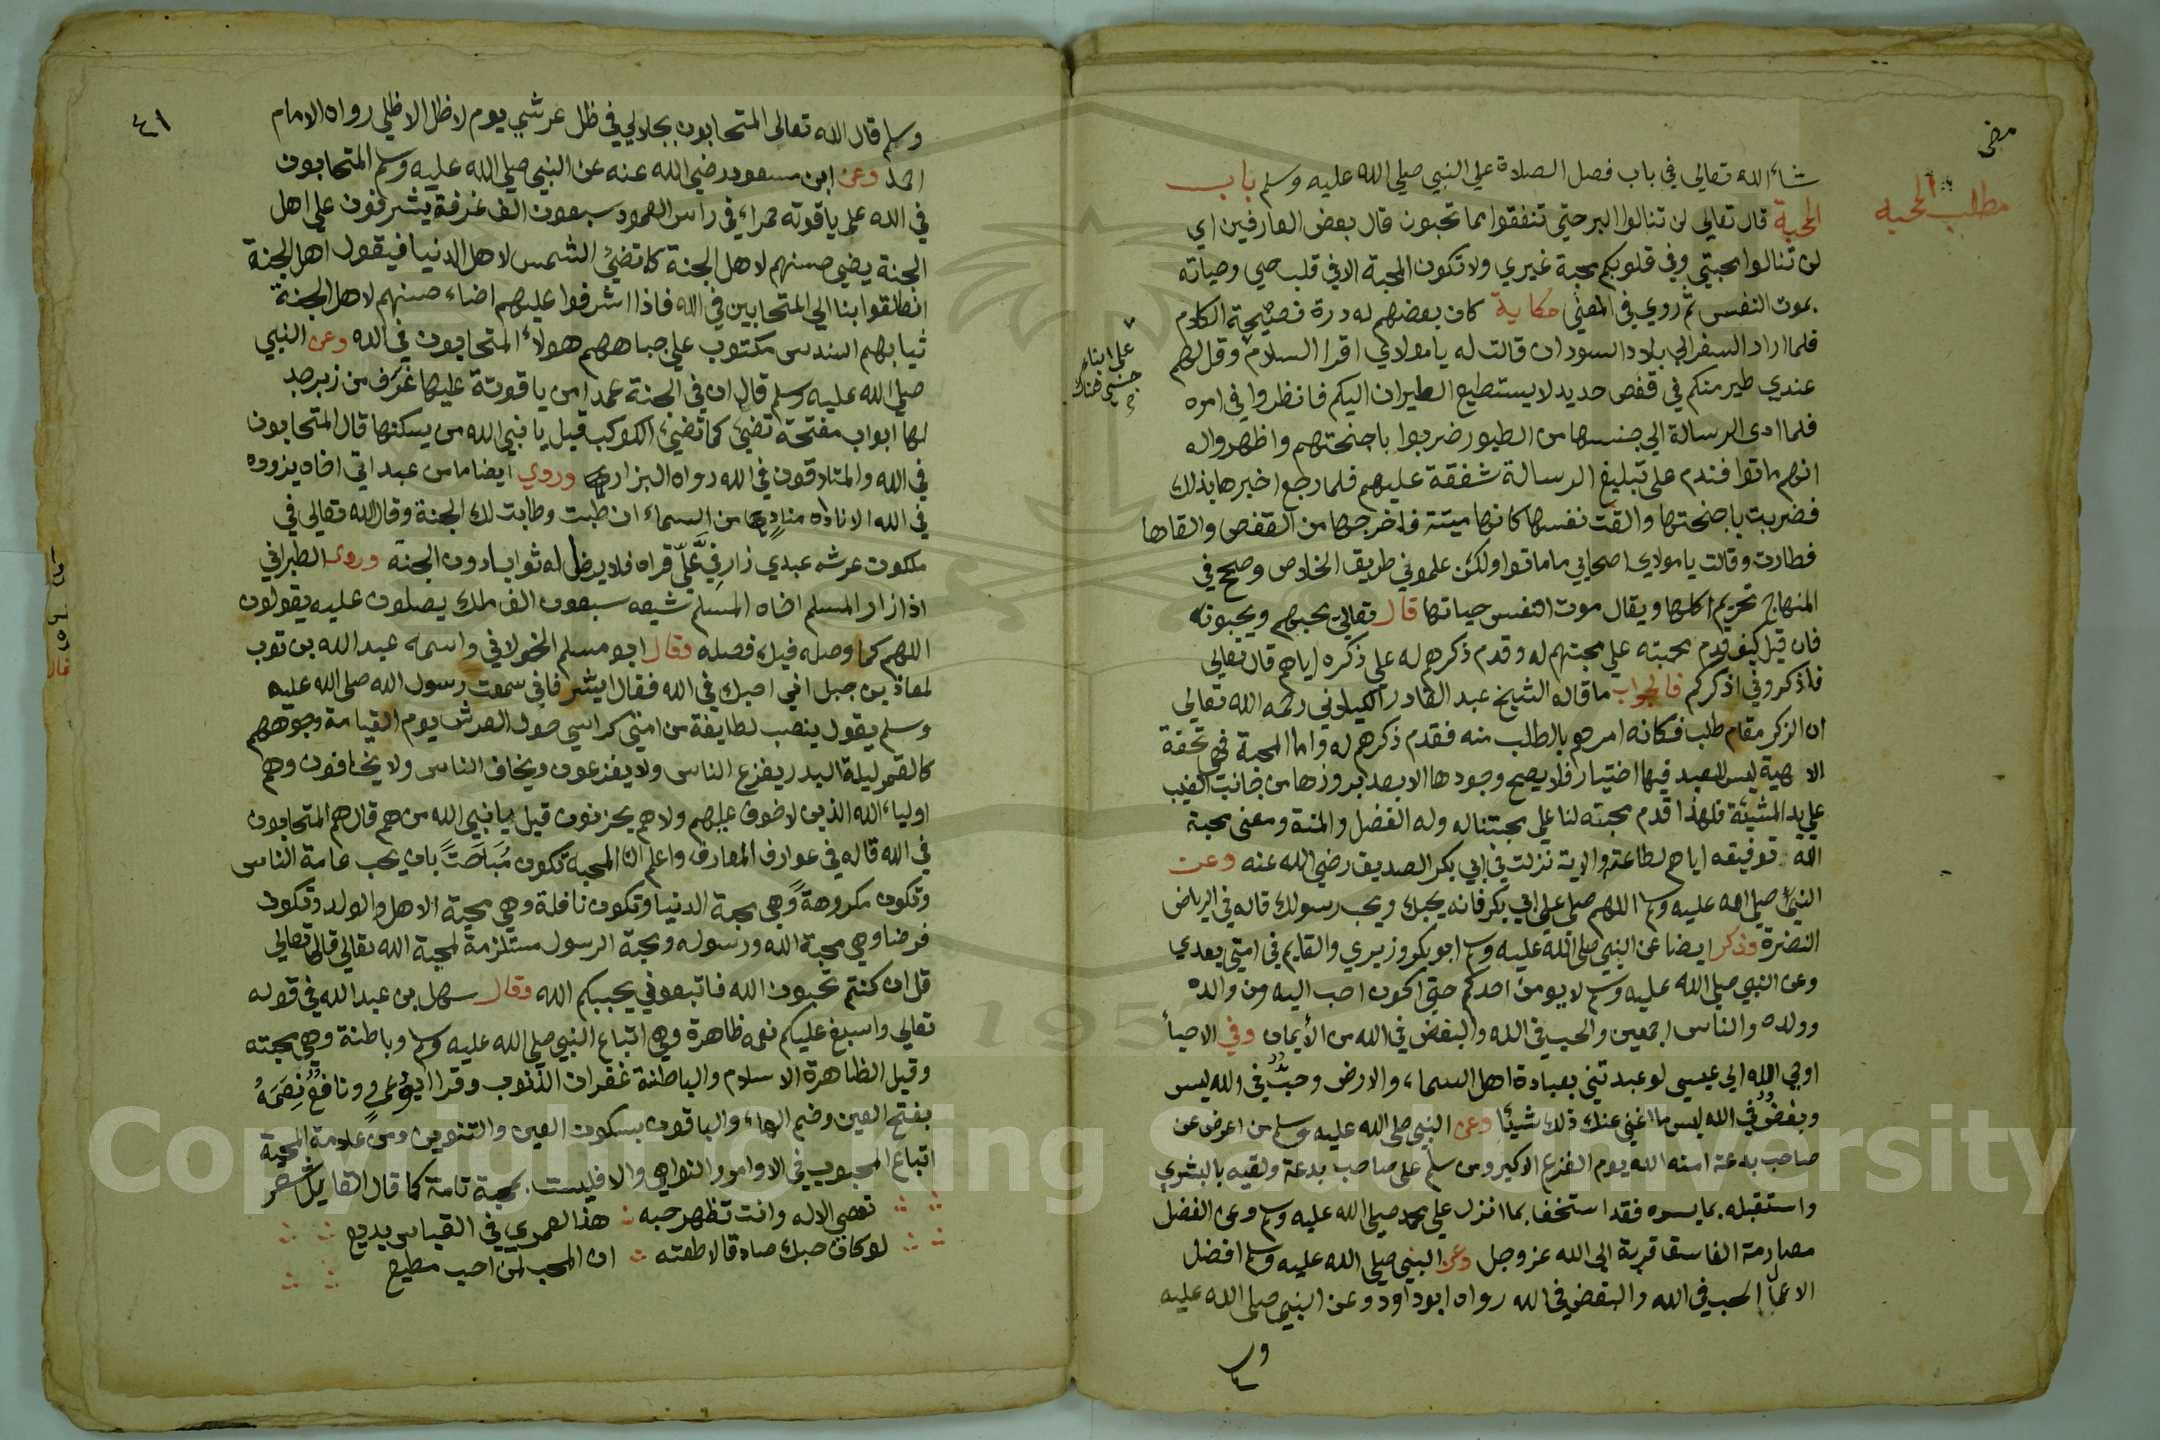 مطلب المحبه
شاء الله تعالى في باب فصل الصلاة على النبي صلى الله عليه وسلم باب
المحبة قال تعالى لن تنالوا البر حتى تنفقوا مما تحبون قال بعض العارفين اي
لن تنالوا محبتي وفي قلوبكم محبة غيري ولا تكون المحبة الا في قلب حي وحياته
بموت النفس ثم روي في المعنى حكاية كان بعضهم له درة فصيحة الكلام
فلما اراد السفر الى بلاد السودان قالت له يا مولاي اقرا السلام وقل لهم
على ابناء جنسي هناك
عندي طير منكم في قفص حديد لا يستطيع الطيران اليكم فانظروا في امره
فلما ادى الرسالة الى جنسها من الطيور ضربوا باجنحتهم واظهروا له
انهم ماتوا فندم على تبليغ الرسالة شفقة عليهم فلما رجع اخبرها بذلك
فضربت باجنحتها والقت نفسها كانها ميتة فاخرجها من القفص والقاها
فطارت وقالت يا مولاي اصحابي ما ماتوا ولكن علموني طريق الخلاص وصح في
المنهاج تحريم اكلها ويقال موت النفس حياتها قال تعالى يحبهم ويحبونه
فان قيل كيف قدم محبته على محبتهم له وقدم ذكرهم له على ذكره اياهم قال تعالى
فاذكروني اذكركم فالجواب ما قاله الشيخ عبد القادر الكيلاني رحمه الله تعالى
ان الذكر مقام طلب فكانه امرهم بالطلب منه فقدم ذكرهم له واما المحبة فهي تحفة
الاهية ليس للعبد فيها اختيار فلا يصح وجودها الا بعد بروزها من جانب الغيب
على يد المشيئة فلهذا قدم محبته لنا على محبتنا له وله الفضل والمنة ومعنى محبة
الله توفيقه اياهم لطاعته والاية نزلت في ابي بكر الصديق رضي الله عنه وعن
النبي صلى الله عليه وسلم اللهم صل على ابي بكر فانه يحبك ويحب رسولك قاله في الرياض
النضرة وذكر ايضا عن النبي صلى الله عليه وسلم ابو بكر وزيري والقايم في امتي بعدي
وعن النبي صلى الله عليه وسلم لا يومن احدكم حتى اكون احب اليه من والده
وولده والناس اجمعين والحب في الله والبغض في الله من الأيمان وفي الاحيا
اوحى الله الى عيسى لو عبدتني بعبادة اهل السماء والارض وحب في الله ليس
وبغض في الله ليس ما اغنى عنك ذلك شيئا وعن النبي صلى الله عليه وسلم من اعرض عن
صاحب بدعة امنه الله يوم الفزع الاكبر ومن سلم على صاحب بدعة ولقيه بالبشرى
واستقبله بما يسره فقد استخف بما انزل على محمد صلى الله عليه وسلم وعن الفضل
مصارمة الفاسق قربة الى الله عز وجل وعن النبي صلى الله عليه وسلم افضل
الاعمال الحب في الله والبغض في الله رواه ابو داود وعن النبي صلى الله عليه
٤١
وسلم قال الله تعالى المتحابون بجلالي في ظل عرشي يوم لا ظل الا ظلي رواه الامام
احمد وعن ابن مسعود رضي الله عنه عن النبي صلى الله عليه وسلم المتحابون
في الله على ياقوته حمراء في راس العمود سبعون الف غرفة يشرفون على اهل
الجنة يضي حسنهم لاهل الجنة كما تضئ الشمس لاهل الدنيا فيقول اهل الجنة
انطلقوا بنا الى المتحابين في الله فاذا اشرفوا عليهم اضاء حسنهم لاهل الجنة
ثيابهم السندس مكتوب على جباههم هولاء المتحابون في الله وعن النبي
صلى الله عليه وسلم قال ان في الجنة عمدا من ياقوتة عليها غرف من زبرجد
لها ابواب مفتحة تضئ كما تضئ الكوكب قيل يا نبي الله من يسكنها قال المتحابون
في الله والمتلاقون في الله رواه البزار وروي ايضا ما من عبد اتى اخاه يزوره
في الله الا ناداه مناد من السماء ان طبت وطابت لك الجنة وقال الله تعالى في
ملكوت عرشه عبدي زار في عليّ قراه فلا يرض له ثوابا دون الجنة وروى الطبراني
اذا زار المسلم اخاه المسلم شيعه سبعون الف ملك يصلون عليه يقولون
اللهم كما وصله فيك فصله وقال ابو مسلم الخولاني واسمه عبد الله بن ثوب
لمعاذ بن جبل اني احبك في الله فقال ابشر فاني سمعت رسول الله صلى الله عليه
وسلم يقول ينصب لطايفة من امتي كراسي حول العرش يوم القيامة وجوههم
كالقمر ليلة البدر يفزع الناس ولا يفزعون ويخاف الناس ولا يخافون وهم
اولياء الله الذين لا خوف عليهم ولا هم يحزنون قيل يا نبي الله من هم قال هم المتحابون
في الله قاله في عوارف المعارف واعلم ان المحبه تكون مُبَاحَتً بان يحب عامة الناس
وتكون مكروهة وهي محبة الدنيا وتكون نافلة وهي محبة الاهل والولد وتكون
فرضا وهي محبة الله ورسوله ومحبة الرسول مستلزمة لمحبة الله تعالى قال تعالى
قل ان كنتم تحبون الله فاتبعوني يحببكم الله وقال سهل بن عبد الله في قوله
تعالى واسبغ عليكم نعمه ظاهرة وهي اتباع النبي صلى الله عليه وسلم وباطنة وهي محبته
وقيل الظاهرة الاسلام والباطنة غفران الذنوب وقرا ابو عمرو ونافع نِعَمَهُ
بفتح العين وضم الهاء والباقون بسكون العين والتنوين ومن علامة المحبة
اتباع المحبوب في الاوامر والنواهي والا فليست محبة تامة كما قال القايل شعر
تعصى الاله وانت تظهر حبه هذا لعمري في القياس بديع
لو كان حبك صادقا لاطعته ان المحب لمن احب مطيع
Copyright © King Saud University
1957